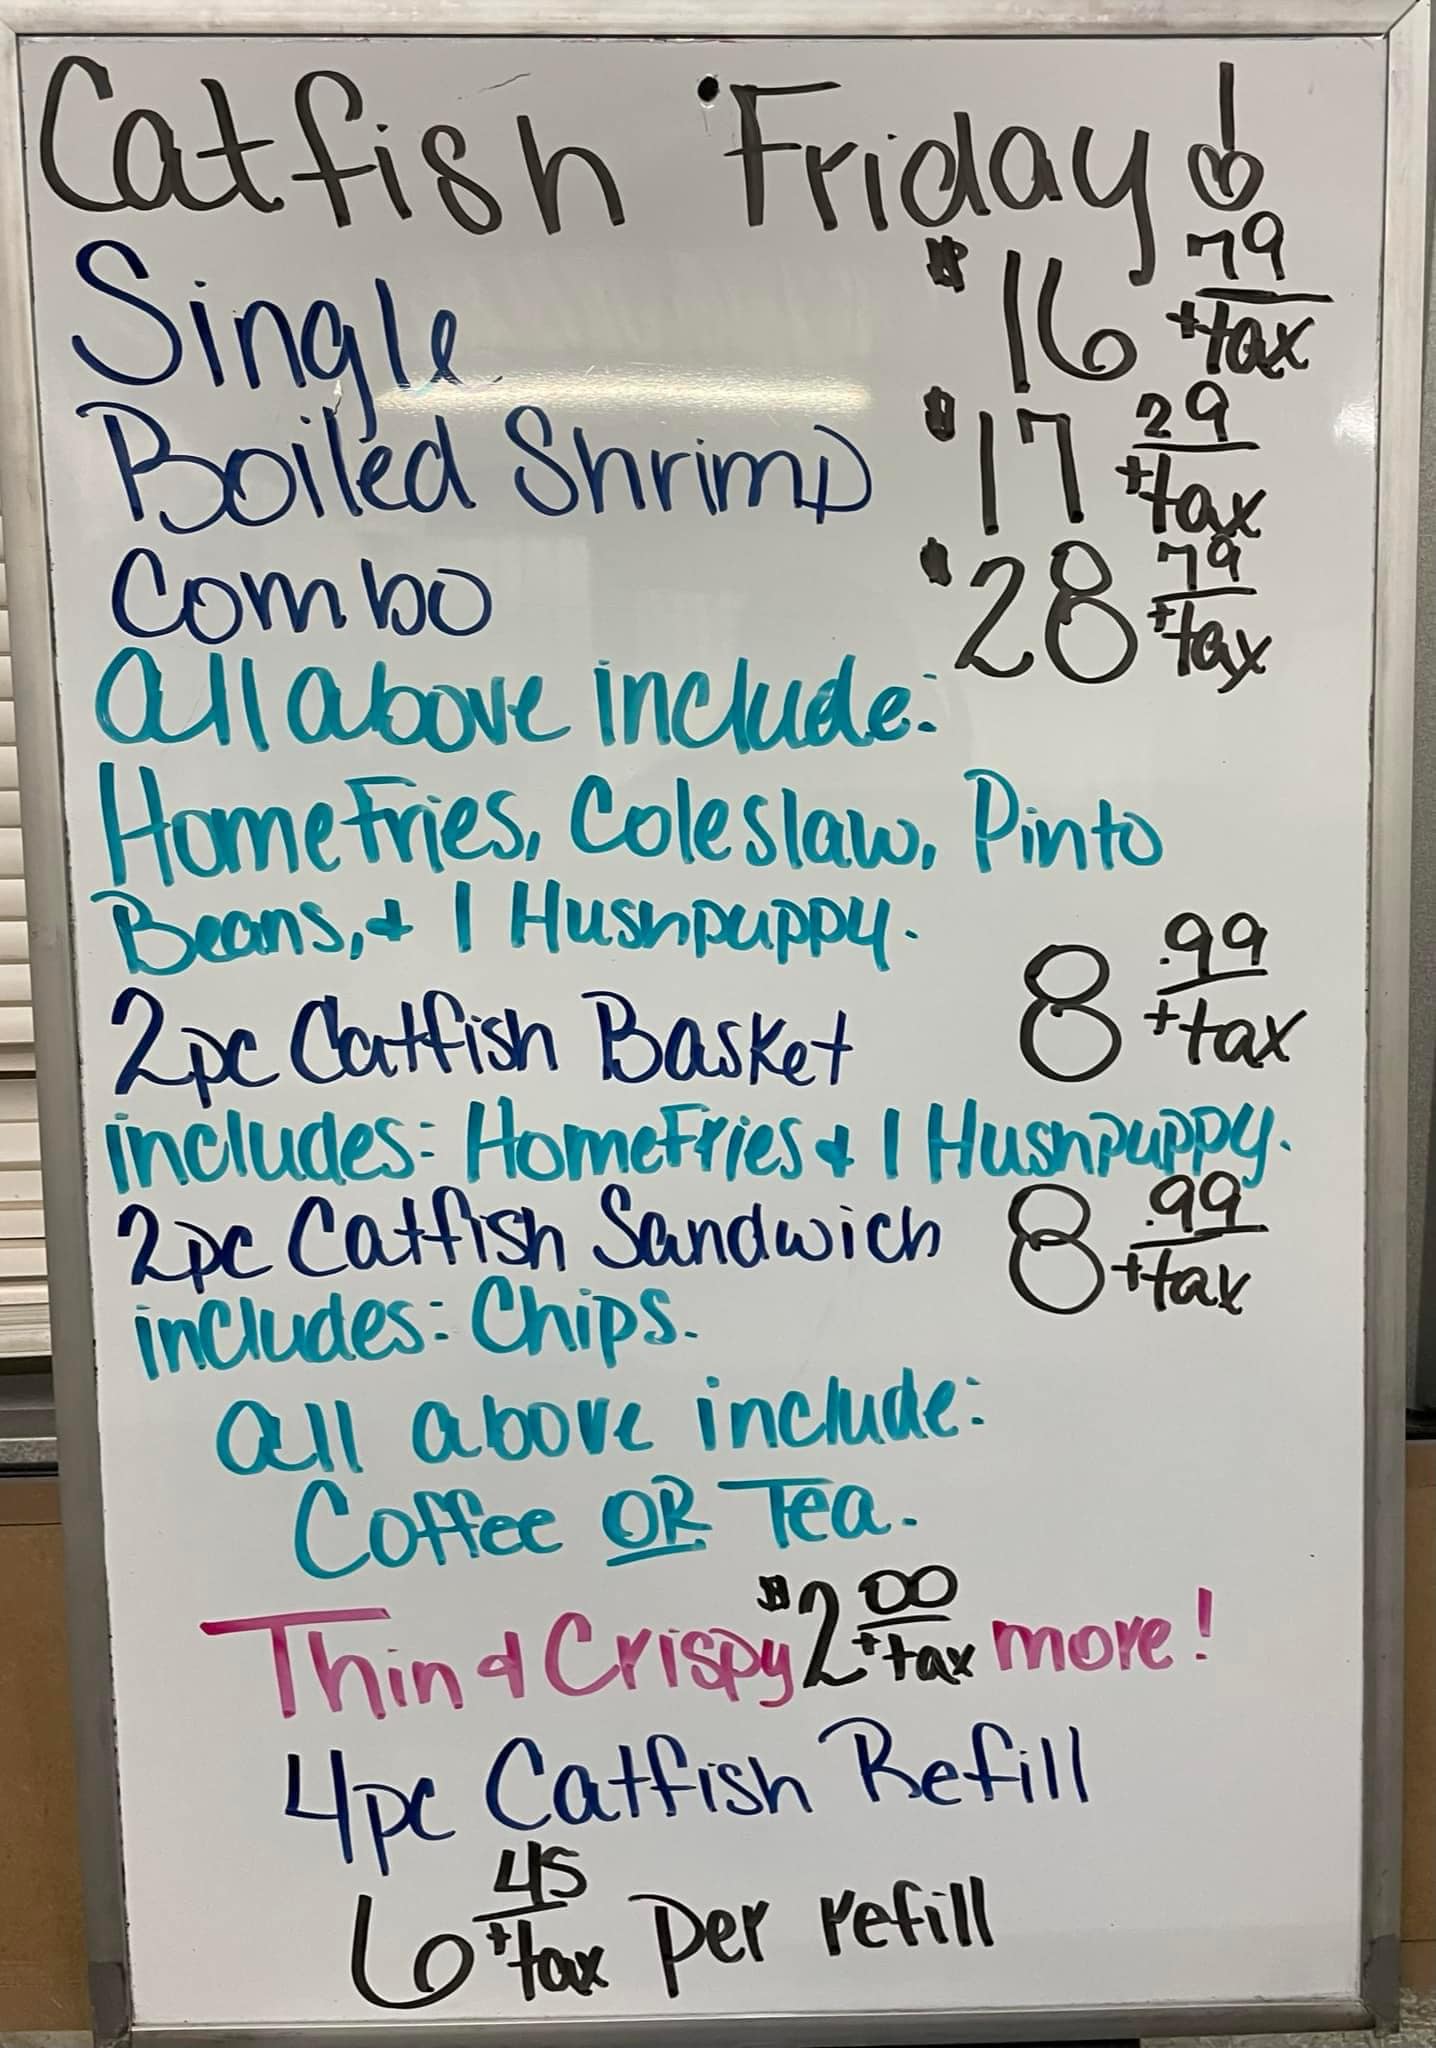 Catfish Friday!
Single $16 79 +tax
Boiled Shrimp $17 29 +tax
Combo $28 79 +tax
All above include:
Home Fries, Coleslaw, Pinto
Beans, & 1 Hushpuppy.
2pc Catfish Basket 8 .99 +tax
includes: Home Fries & 1 Hushpuppy.
2pc Catfish Sandwich 8 .99 +tax
includes: Chips.
All above include:
Coffee OR Tea.
Thin & Crispy $2 00 +tax more!
4pc Catfish Refill
6 45 +tax per refill